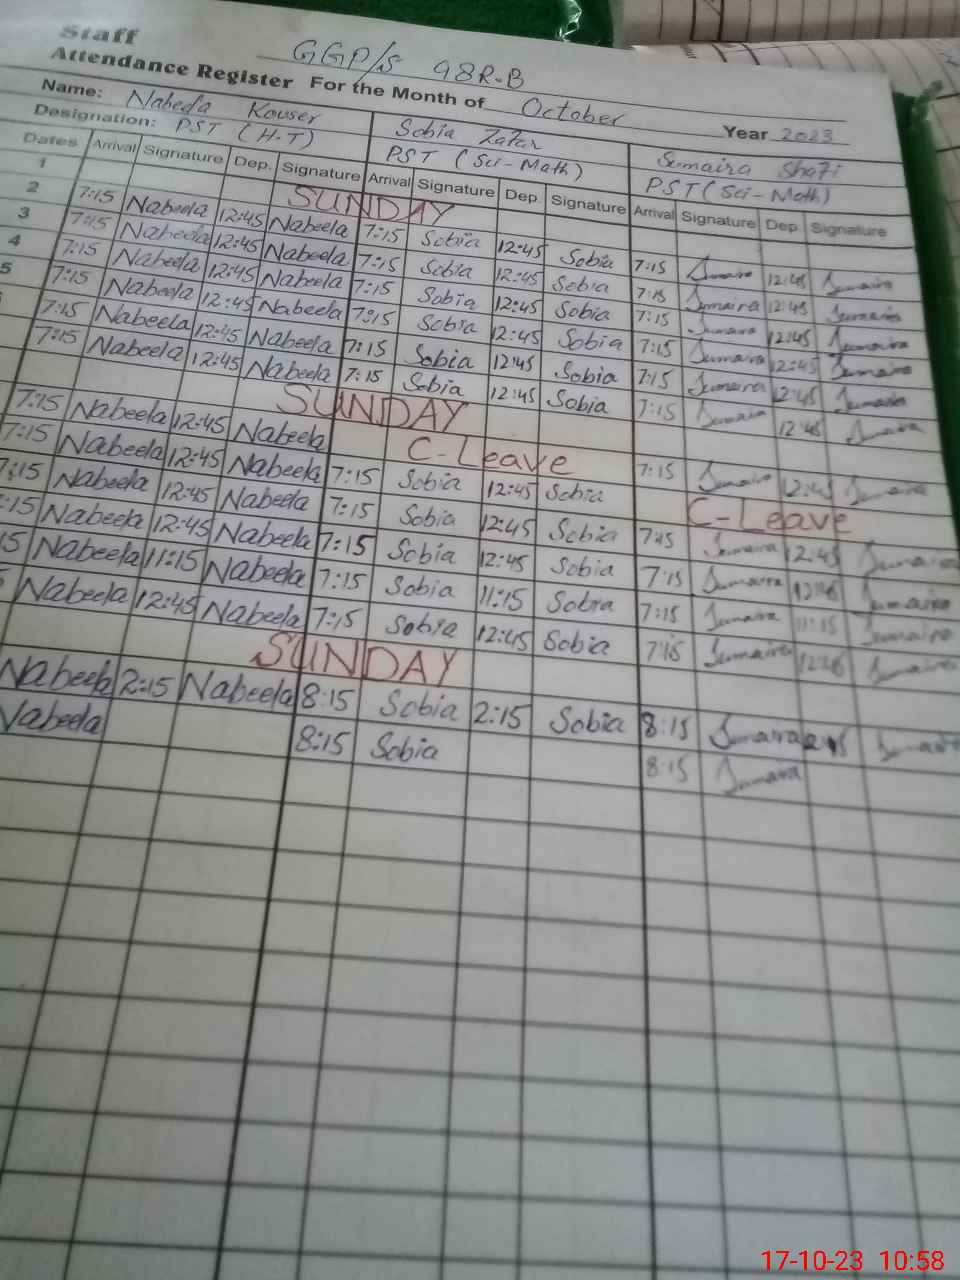 Staff
GGP/S 98R-B
Attendance Register For the Month of October Year 2023
Name: Nabeela Kouser Sobia Zafar Sumaira Shafi
Designation: PST (H-T) PST (Sci-Math) PST (Sci-Math)
Dates Arrival Signature Dep. Signature Arrival Signature Dep. Signature Arrival Signature Dep. Signature
1 SUNDAY
2 7:15 Nabeela 12:45 Nabeela 7:15 Sobia 12:45 Sobia 7:15 Sumaira 12:45 Sumaira
3 7:15 Nabeela 12:45 Nabeela 7:15 Sobia 12:45 Sobia 7:15 Sumaira 12:45 Sumaira
4 7:15 Nabeela 12:45 Nabeela 7:15 Sobia 12:45 Sobia 7:15 Sumaira 12:45 Sumaira
5 7:15 Nabeela 12:45 Nabeela 7:15 Sobia 12:45 Sobia 7:15 Sumaira 12:45 Sumaira
7:15 Nabeela 12:45 Nabeela 7:15 Sobia 12:45 Sobia 7:15 Sumaira 12:45 Sumaira
7:15 Nabeela 12:45 Nabeela 7:15 Sobia 12:45 Sobia 7:15 Sumaira 12:45 Sumaira
SUNDAY
7:15 Nabeela 12:45 Nabeela C-Leave 7:15 Sumaira 12:45 Sumaira
7:15 Nabeela 12:45 Nabeela 7:15 Sobia 12:45 Sobia C-Leave
7:15 Nabeela 12:45 Nabeela 7:15 Sobia 12:45 Sobia 7:15 Sumaira 12:45 Sumaira
:15 Nabeela 12:45 Nabeela 7:15 Sobia 12:45 Sobia 7:15 Sumaira 12:45 Sumaira
15 Nabeela 11:15 Nabeela 7:15 Sobia 11:15 Sobia 7:15 Sumaira 11:15 Sumaira
5 Nabeela 12:45 Nabeela 7:15 Sobia 12:45 Sobia 7:15 Sumaira 12:45 Sumaira
SUNDAY
Nabeela 2:15 Nabeela 8:15 Sobia 2:15 Sobia 8:15 Sumaira 2:15 Sumaira
Nabeela 8:15 Sobia 8:15 Sumaira
17-10-23 10:58